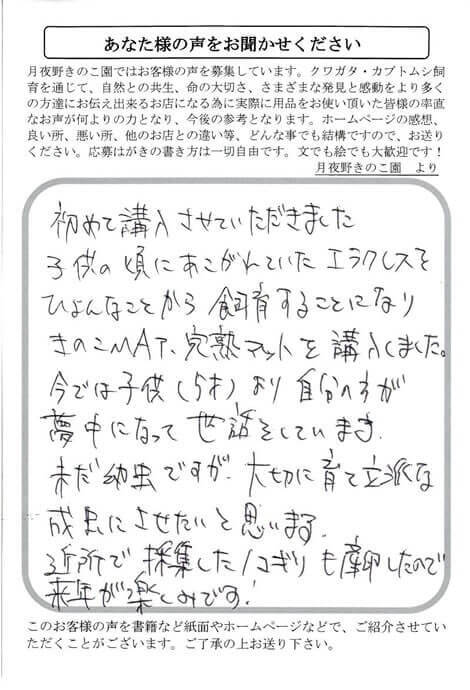 あなた様の声をお聞かせください
月夜野きのこ園ではお客様の声を募集しています。クワガタ・カブトムシ飼
育を通じて、自然との共生、命の大切さ、さまざまな発見と感動をより多く
の方達にお伝え出来るお店になる為に実際に用品をお使い頂いた皆様の率直
なお声が何よりの力となり、今後の参考となります。ホームページの感想、
良い所、悪い所、他のお店との違い等、どんな事でも結構ですので、お送り
ください。応募はがきの書き方は一切自由です。文でも絵でも大歓迎です！
月夜野きのこ園　より
初めて講入させていただきました
子供の頃にあこがれていたエラクレスを
ひょんなことから飼育することになり
きのこMAT、完熟マットを講入しました。
今では子供(5才)より自分の方が
夢中になって世話をしています.
未だ幼虫ですが、大切に育て立派な
成虫にさせたいと思います.
近所で採集したノコギリも産卵したので
来年が楽しみです!
このお客様の声を書籍など紙面やホームページなどで、ご紹介させてい
ただくことがございます。ご了承の上お送り下さい。